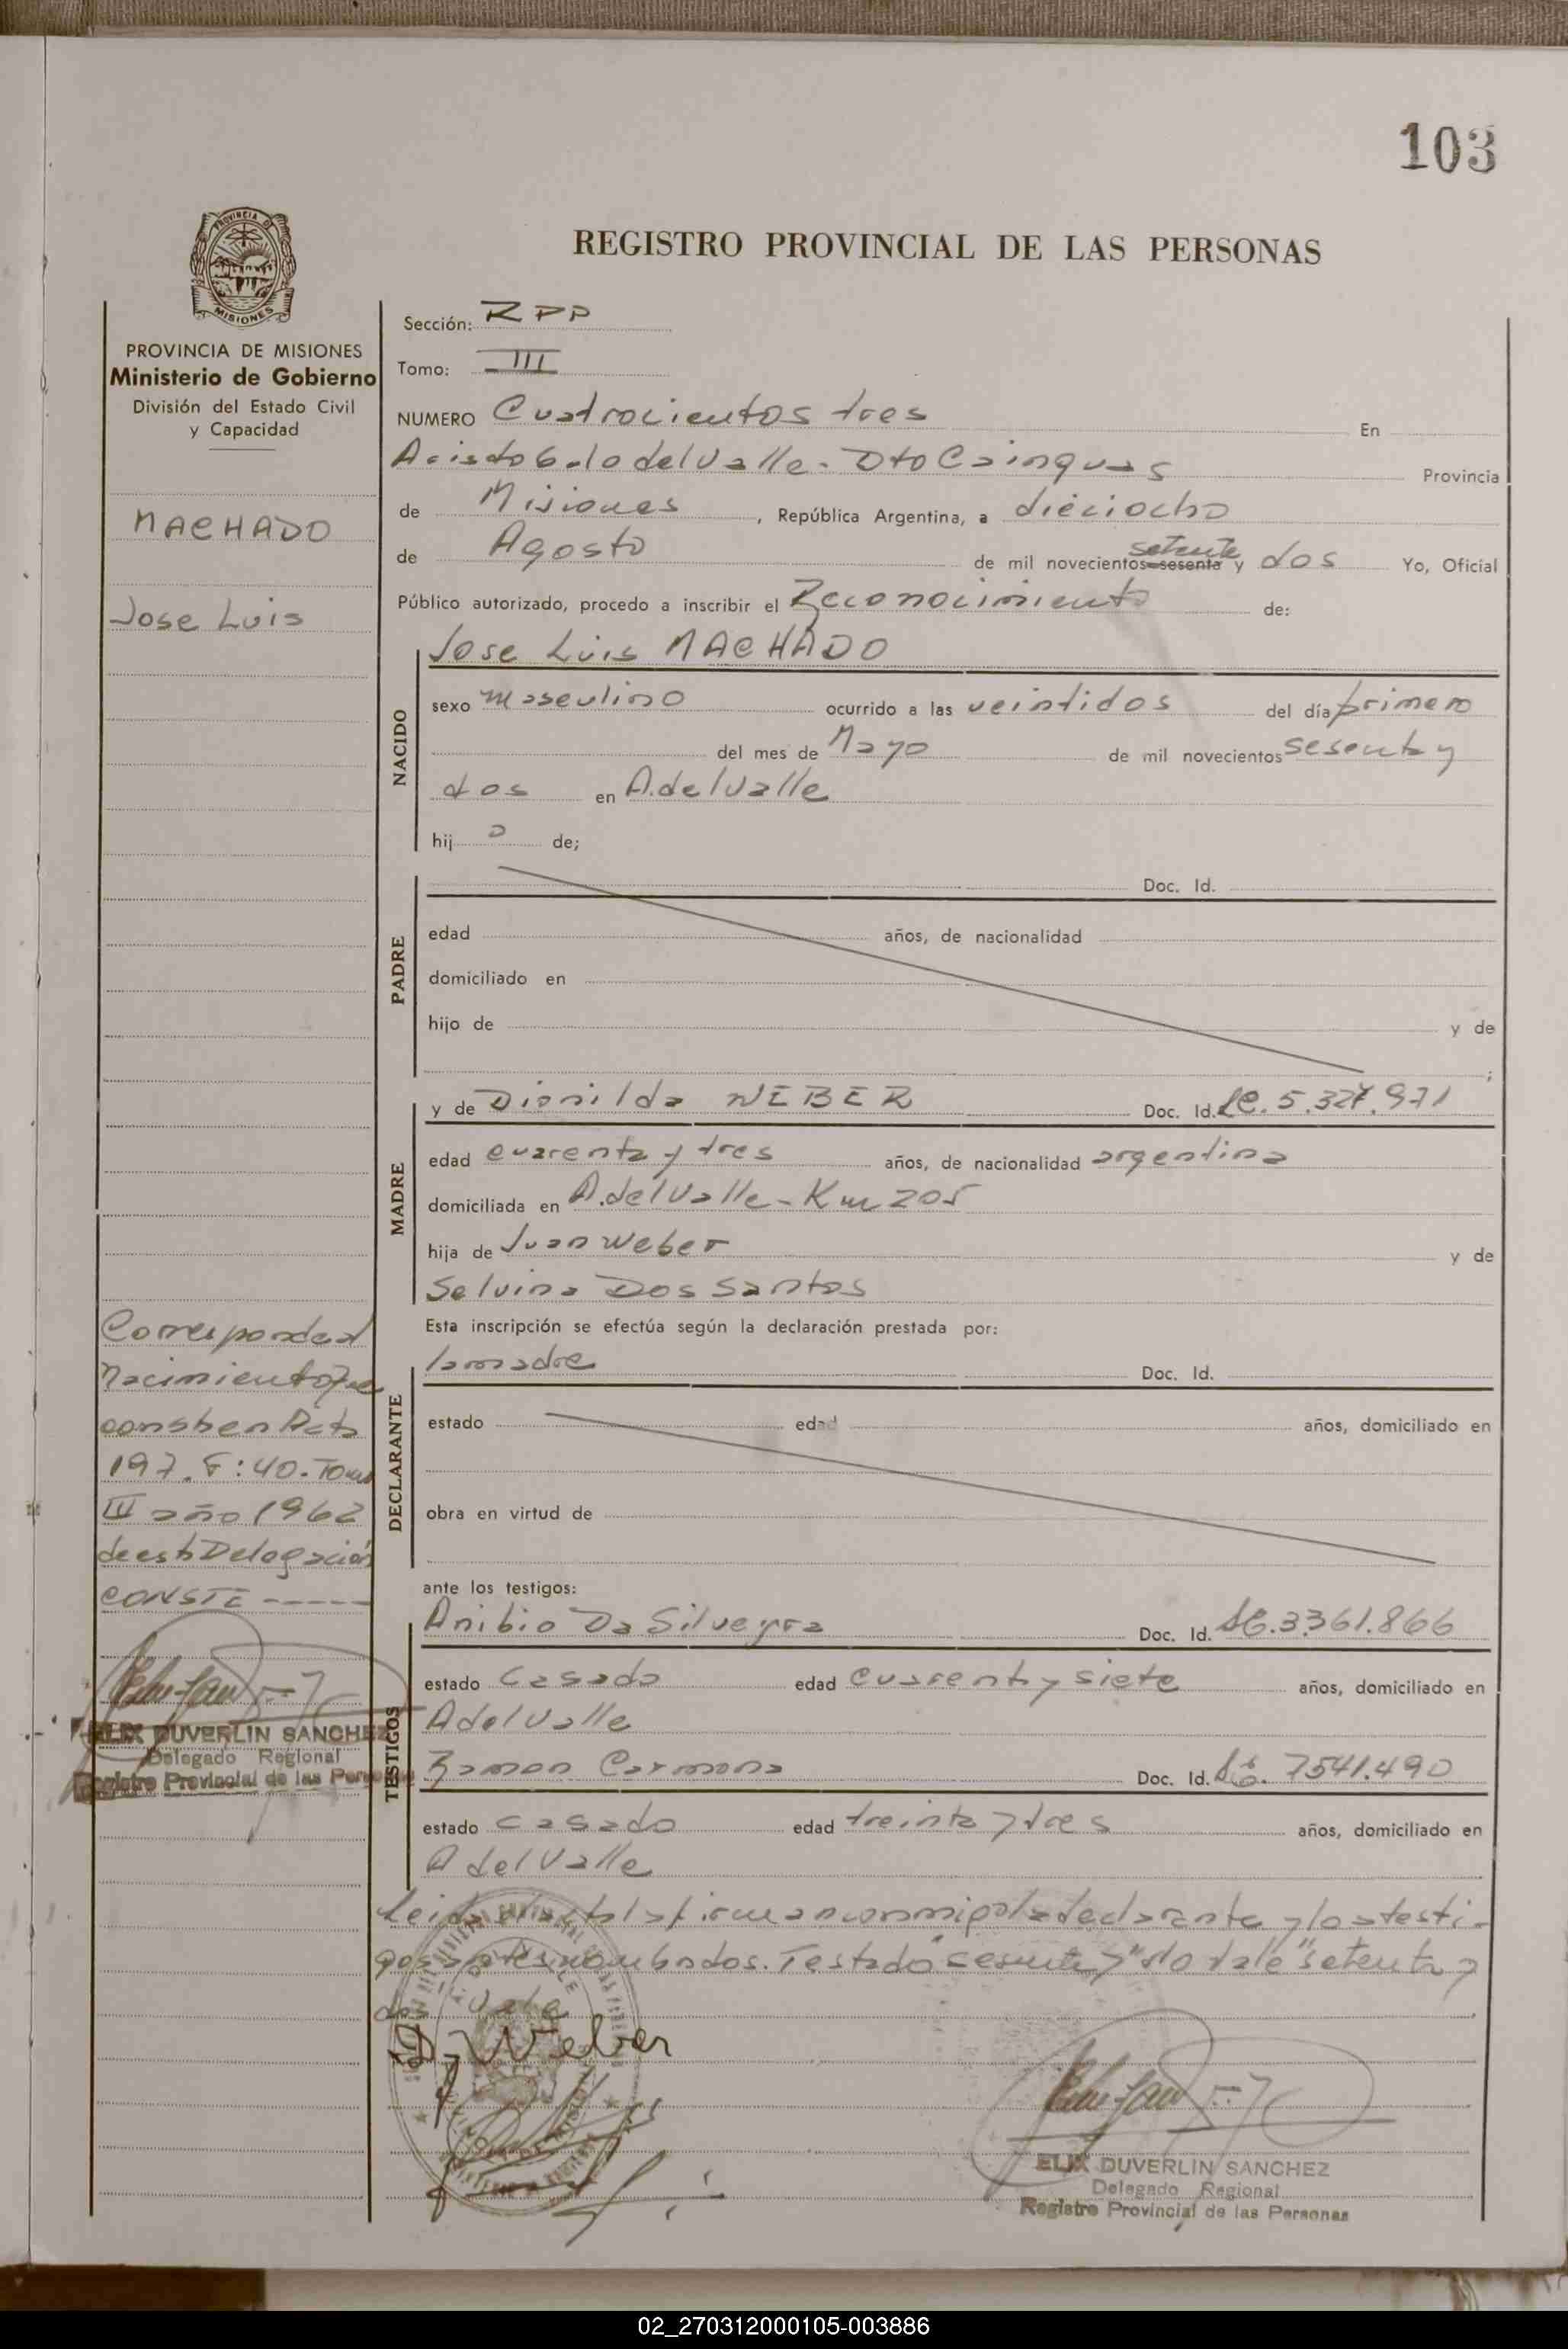 103
PROVINCIA DE
MISIONES
REGISTRO PROVINCIAL DE LAS PERSONAS
PROVINCIA DE MISIONES
Ministerio de Gobierno
División del Estado Civil
y Capacidad
MACHADO
Jose Luis
Sección: RPP
Tomo: III
NUMERO Cuatrocientos tres En
Aristobulo del Valle - Dto Cainguas Provincia
de Misiones, República Argentina, a dieciocho
de Agosto de mil novecientos sesenta setenta y dos Yo, Oficial
Público autorizado, procedo a inscribir el Reconocimiento de:
Jose Luis MACHADO
NACIDO
sexo masculino ocurrido a las veintidos del día primero
del mes de Mayo de mil novecientos sesenta y
dos en A.delValle
hij o de;
PADRE
Doc. Id.
edad años, de nacionalidad
domiciliado en
hijo de y de
;
MADRE
y de Dionilda WEBER Doc. Id. LC. 5.327.971
edad cuarenta y tres años, de nacionalidad argentina
domiciliada en A.delValle - Km 205
hija de Juan Weber y de
Selvina Dos Santos
Esta inscripción se efectúa según la declaración prestada por:
DECLARANTE
la madre Doc. Id.
estado edad años, domiciliado en
obra en virtud de
ante los testigos:
TESTIGOS
Anibio Da Silveyra Doc. Id. 3.361.866
estado Casado edad cuarenta y siete años, domiciliado en
AdelValle
Ramon Carmona Doc. Id. 7541.490
estado casado edad treinta y tres años, domiciliado en
A delValle
Leida el acta la firman conmigo la declarante y los testi-
gos antes nombrados. Testado "sesenta y" No vale "setenta y
dos" vale
D. Weber
ELIX DUVERLIN SANCHEZ
Delegado Regional
Registro Provincial de las Personas
Corresponde al
Nacimiento que
consta en Acta
197. F: 40. Tomo
III año 1962
de esta Delegación
CONSTE -----
ELIX DUVERLIN SANCHEZ
Delegado Regional
Registro Provincial de las Personas
02_270312000105-003886